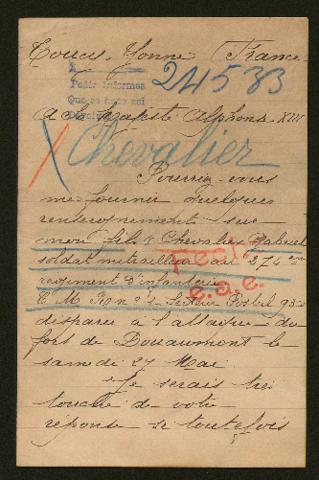 Toucy Yonne (France
24583
Pedir informes
Que se haga así
A Sa Majesté Alphonse XIII
Chevalier
Pourriez vous
me fournir quelques
renseignements sur
mon fils Chevalier Gabriel
soldat mitrailleur au 276 eme
regiment d'infanterie
Secteur Postal
Fecit
e.s.e.
disparu à l'attaque du
fort de Douaumont le
samedi 27 Mai.
Je serais très
touché de votre
réponse si toutefois